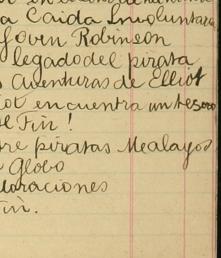 a Caida Involuntaria
Joven Robinson
legado del pirata
Aventuras de Elliot
encuentra un tesoro
Fin!
piratas Mealayos
Globo
loraciones
Fin.